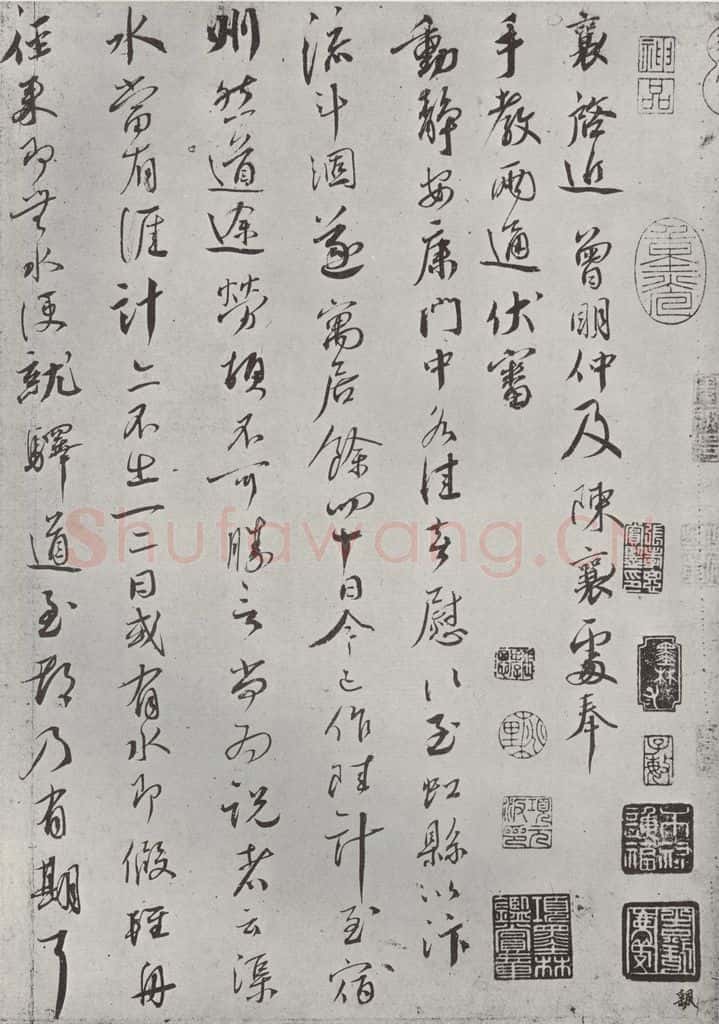 襄啓近曾明仲及陳襄處奉
手教兩通伏審
動靜安康門中各佳喜慰以至虹縣以汴
流斗涸遂寓居餘四十日今已作陸計至宿
州然道途勞頓不可勝言尚為說者云渠
水當有涯計亦不出一二日或有水即假輕舟
徑來即無水便就驛道至都乃有期耳
神品
項墨林鑑賞章
Shufawang.CN